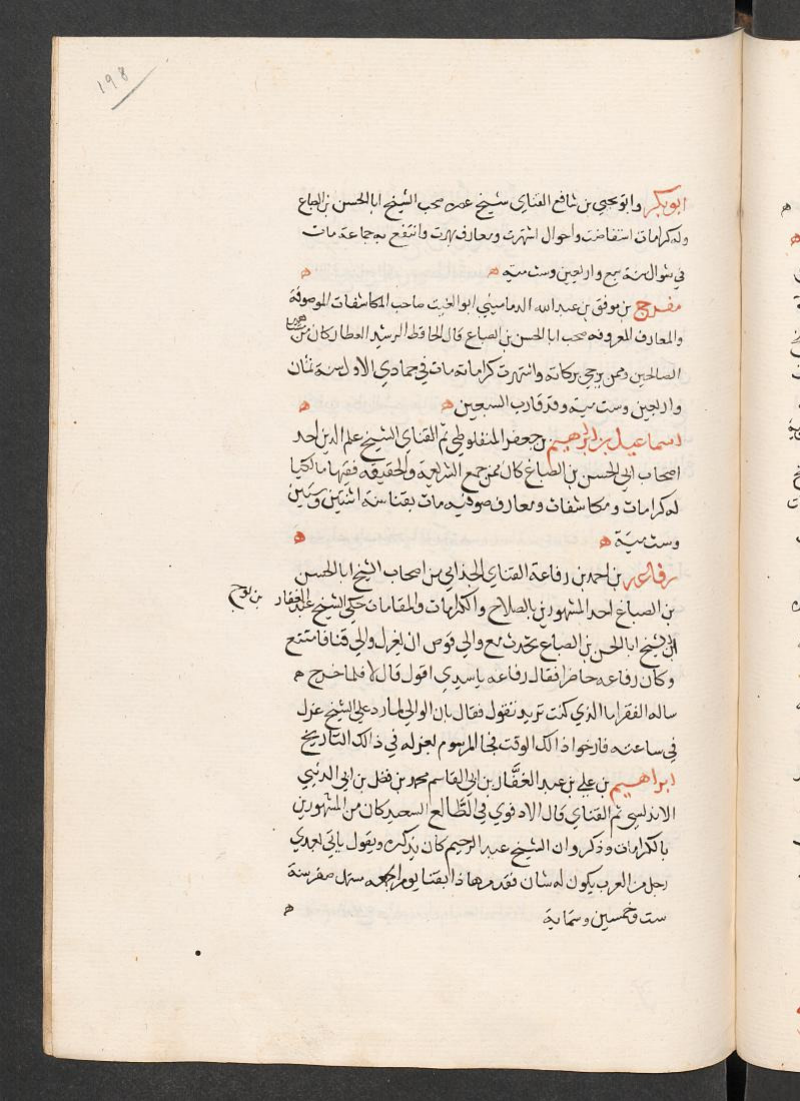 198
ابو بكر وابو يحيى بن شافع القناي شيخ عصره صحب الشيخ ابا الحسن بن الصباغ
وله كرامات استفاضت واحوال اشتهرت ومعارف بهرت وانتفع به جماعة مات
في شوال سنة سبع واربعين وست مية ه ه
مفرج بن موفق بن عبد الله الدماميني ابو الغيث صاحب المكاشفات الموصوفة
والمعارف المعروفه صحب ابا الحسن بن الصباغ قال الحافظ الرشيد العطار كان من
الصالحين وممن يرجى بركاته واشتهرت كراماته مات في جمادي الاول سنة ثمان
واربعين وست مية وقد قارب السبعين ه ه
اسماعيل بن ابراهيم بن جعفر المنفلوطي ثم القناي الشيخ علم الدين احد
اصحاب ابي الحسن بن الصباغ كان ممن جمع الشريعة والحقيقه فقيها مالكيا
له كرامات ومكاشفات ومعارف صوفيه مات بقنا سنة اثنتين وستين
وست مية ه ه
رفاعه بن احمد بن رفاعة القناي الجذامي من اصحاب الشيخ ابا الحسن
بن الصباغ احد المشهورين بالصلاح والكرامات والمقامات حكى الشيخ عبد الغفار بن نوح
ان الشيخ ابا الحسن بن الصباغ تحدث مع والي قوص ان يعزل والي قنا فامتنع
وكان رفاعه حاضرا فقال رفاعه يا سيدي اقول قال لا فلما خرج ه
ساله الفقرا ما الذي كنت تريد تقول فقال بان الوالي لما رد على الشيخ عزل
في ساعته فارخوا ذالك الوقت فجا المرسوم بعزله في ذالك التاريخ
ابراهيم بن علي بن عبد الغفار بن ابي القاسم محمد بن فضل بن ابي الدنيى
الاندلسي ثم القناي قال الادفوي في الطالع السعيد كان من المشهورين
بالكرامات وذكر وان الشيخ عبد الرحيم كان يذكره ويقول ياتي بعدي
رجل من العرب يكون له شان فقدم هاذا بقنا يوم الجمعه مستهل صفر سنة
ست وخمسين وستماية ه